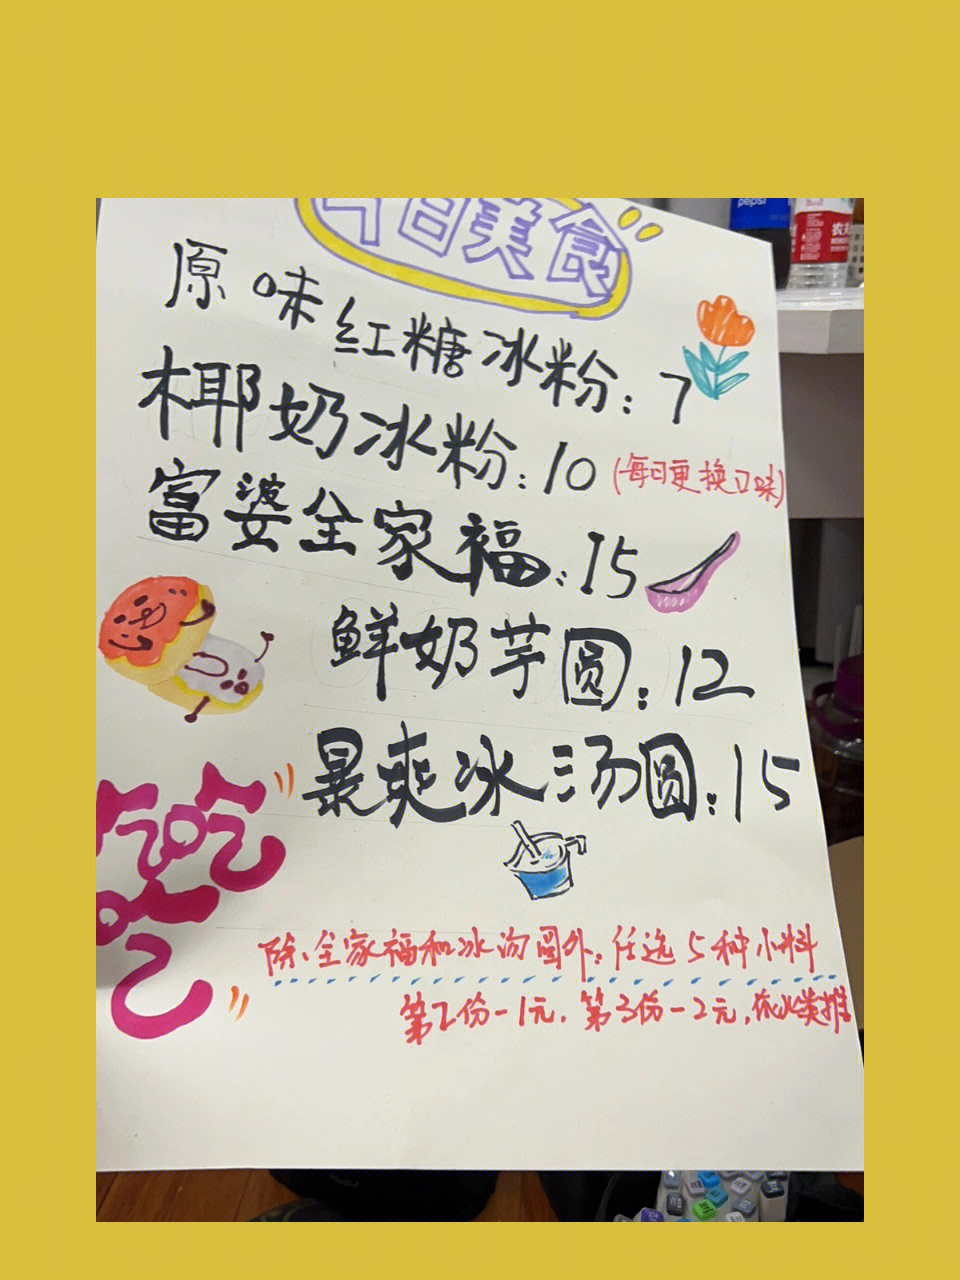 今日美食
原味红糖冰粉:7
椰奶冰粉:10 (每日更换口味)
富婆全家福:15
鲜奶芋圆:12
暴爽冰汤圆:15
吃吃吃
除全家福和冰汤圆外,任选5种小料
第2份-1元,第3份-2元,依此类推
pepsi
农夫